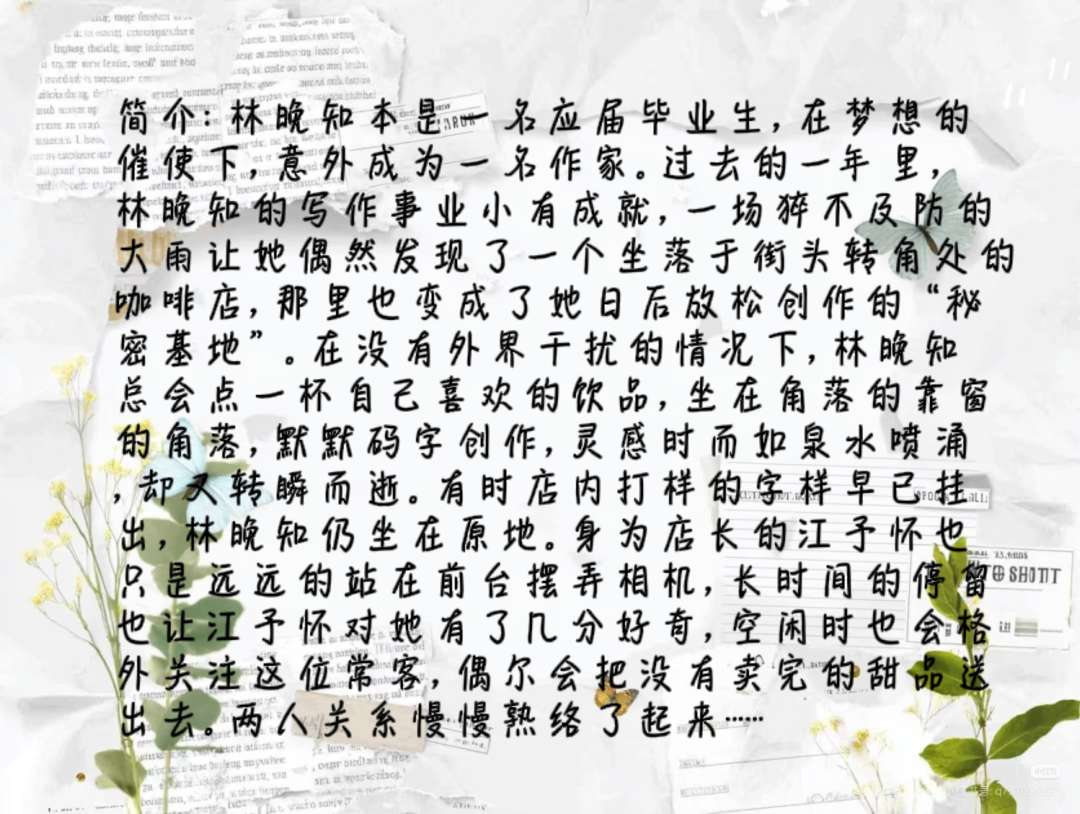 简介：林晚知本是一名应届毕业生，在梦想的
催使下，意外成为一名作家。过去的一年里，
林晚知的写作事业小有成就，一场猝不及防的
大雨让她偶然发现了一个坐落于街头转角处的
咖啡店，那里也变成了她日后放松创作的“秘
密基地”。在没有外界干扰的情况下，林晚知
总会点一杯自己喜欢的饮品，坐在角落的靠窗
的角落，默默码字创作，灵感时而如泉水喷涌
，却又转瞬而逝。有时店内打样的字样早已挂
出，林晚知仍坐在原地。身为店长的江予怀也
只是远远的站在前台摆弄相机，长时间的停留
也让江予怀对她有了几分好奇，空闲时也会格
外关注这位常客，偶尔会把没有卖完的甜品送
出去。两人关系慢慢熟络了起来……